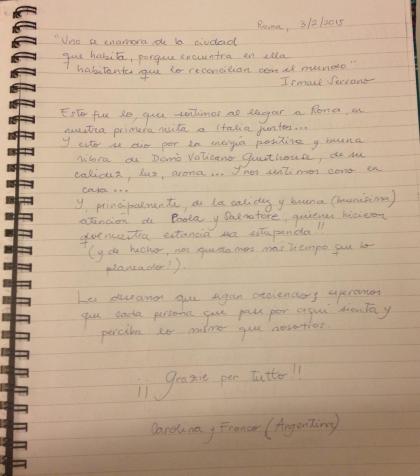 Roma, 3/2/2015
"Uno se enamora de la ciudad
que habita, porque encuentra en ella
habitantes que lo reconcilian con el mundo"
Ismael Serrano
Esto fue lo que sentimos al llegar a Roma, en
nuestra primera visita a Italia juntos...
Y esto se dio por la energía positiva y buena
vibra de Domò Vaticano Guesthouse, de su
calidez, luz, aroma... Y nos sentimos como en
casa...
Y, principalmente, de la calidez y buena (buenísima)
atención de Paola y Salvatore, quienes hicieron
que nuestra estancia sea estupenda!!
(y de hecho, nos quedamos más tiempo que lo
planeado!).
Les deseamos que sigan creciendo y esperamos
que cada persona que pase por aquí sienta y
perciba lo mismo que nosotros.
¡¡ Grazie per tutto!!
Carolina y Franco (Argentina)